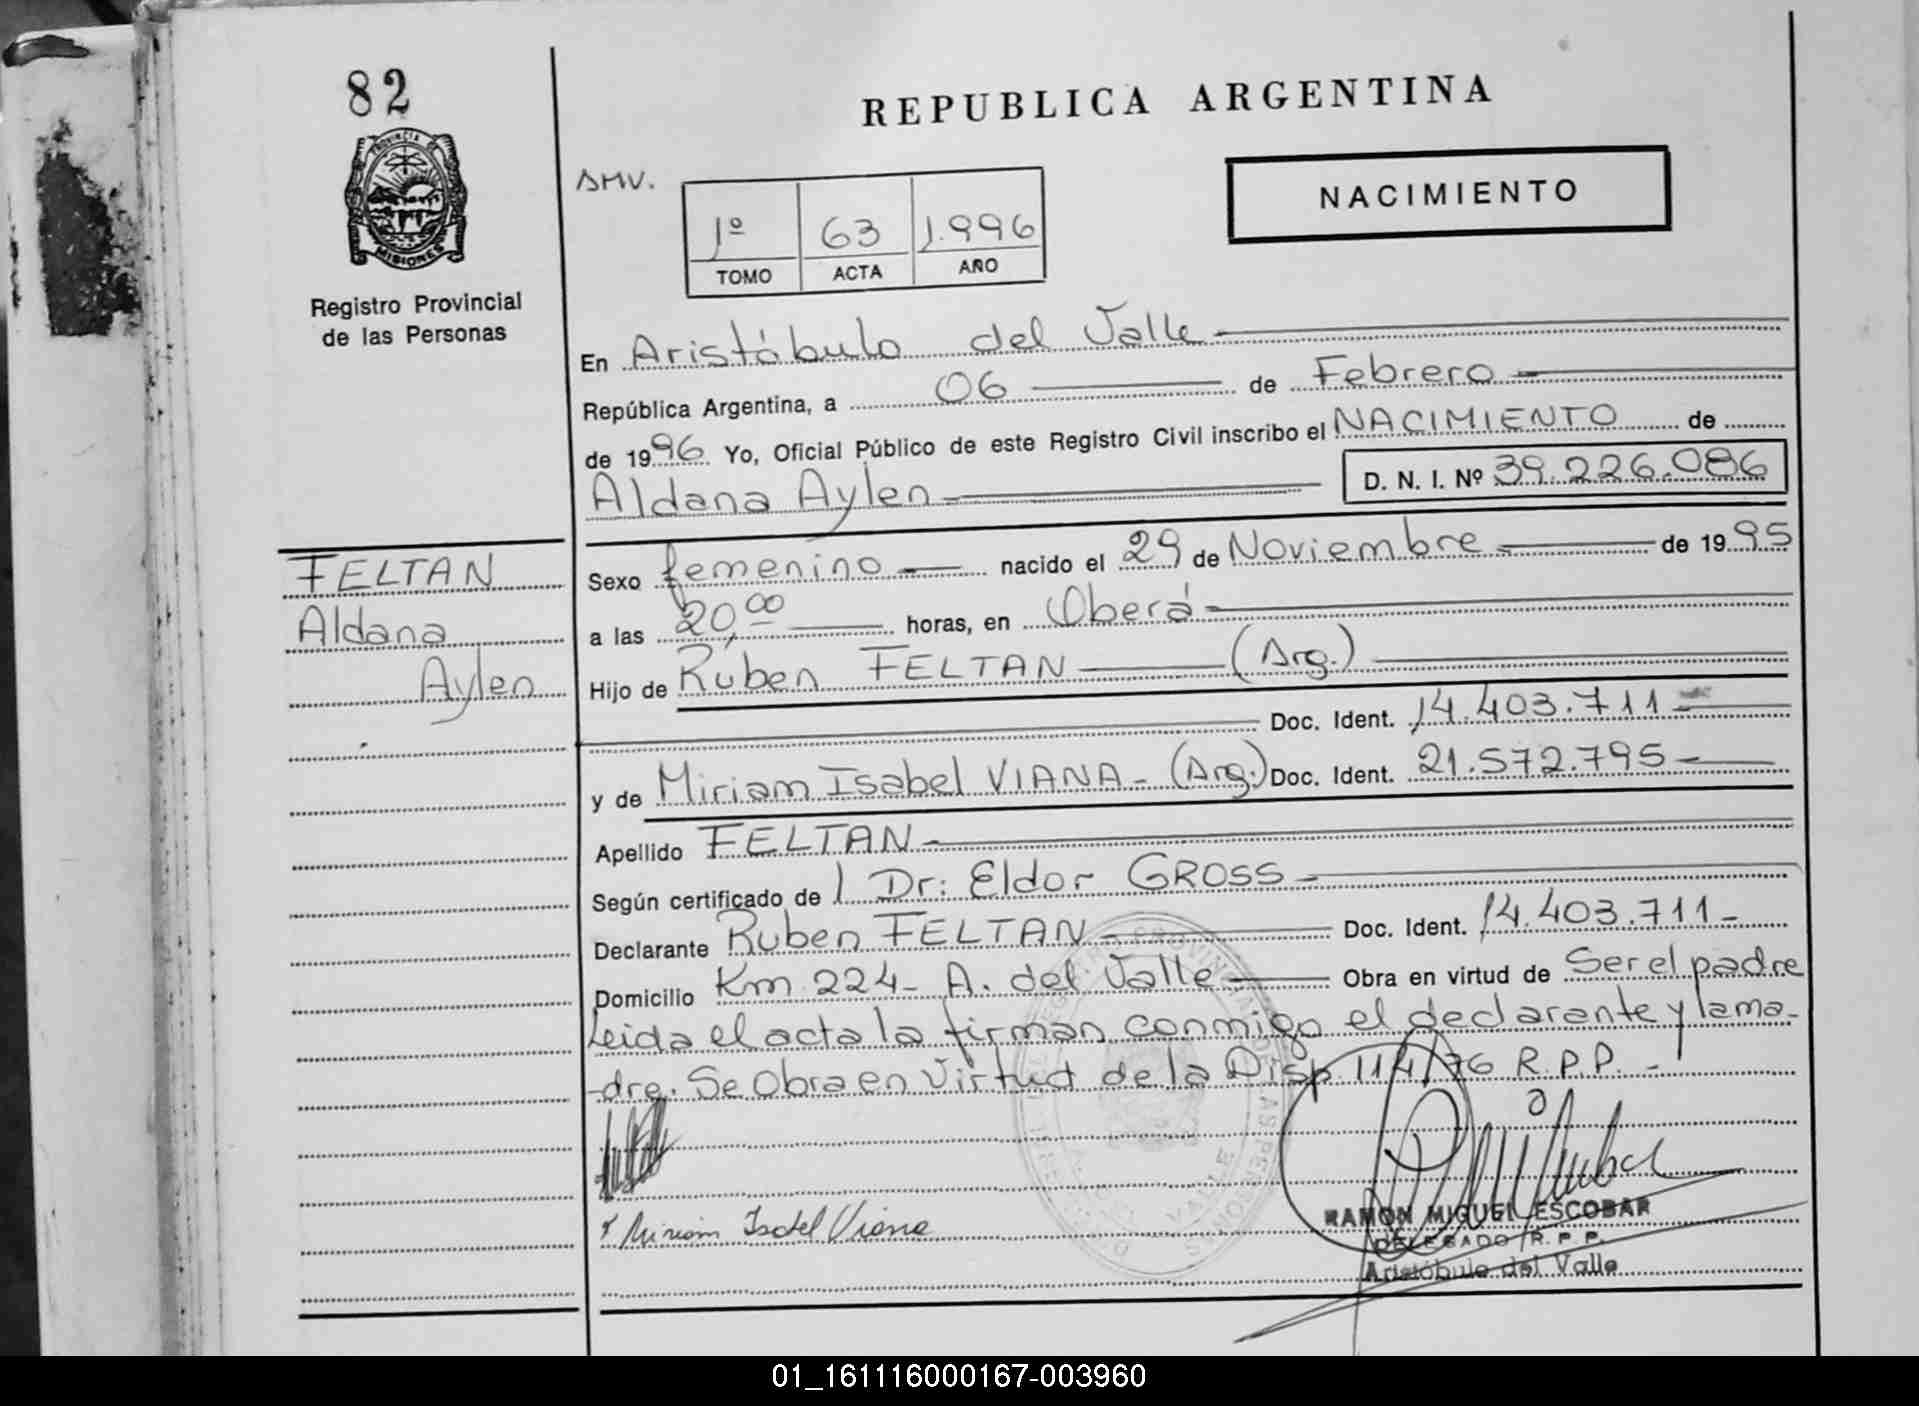 82
PROVINCIA DE
MISIONES
Registro Provincial
de las Personas
REPUBLICA ARGENTINA
NACIMIENTO
AMV.
1º 63 1.996
TOMO ACTA AÑO
En Aristóbulo del Valle
República Argentina, a 06 de Febrero
de 1996 Yo, Oficial Público de este Registro Civil inscribo el NACIMIENTO de
Aldana Aylen D. N. I. Nº 39.226.086
FELTAN
Aldana
Aylen
Sexo femenino nacido el 29 de Noviembre de 1995
a las 20,00 horas, en Oberá
Hijo de Ruben FELTAN (Arg.)
Doc. Ident. 14.403.711
y de Miriam Isabel VIANA - (Arg.) Doc. Ident. 21.572.795
Apellido FELTAN
Según certificado de Dr: Eldor GROSS
Declarante Ruben FELTAN Doc. Ident. 14.403.711
Domicilio Km 224 - A. del Valle Obra en virtud de Ser el padre
Leida el acta la firman conmigo el declarante y la ma-
-dre. Se Obra en Virtud de la Disp 114/76 R.P.P. -
Miriam Isabel Viana
RAMON MIGUEL ESCOBAR
DELEGADO R. P. P.
Aristóbulo del Valle
01_161116000167-003960